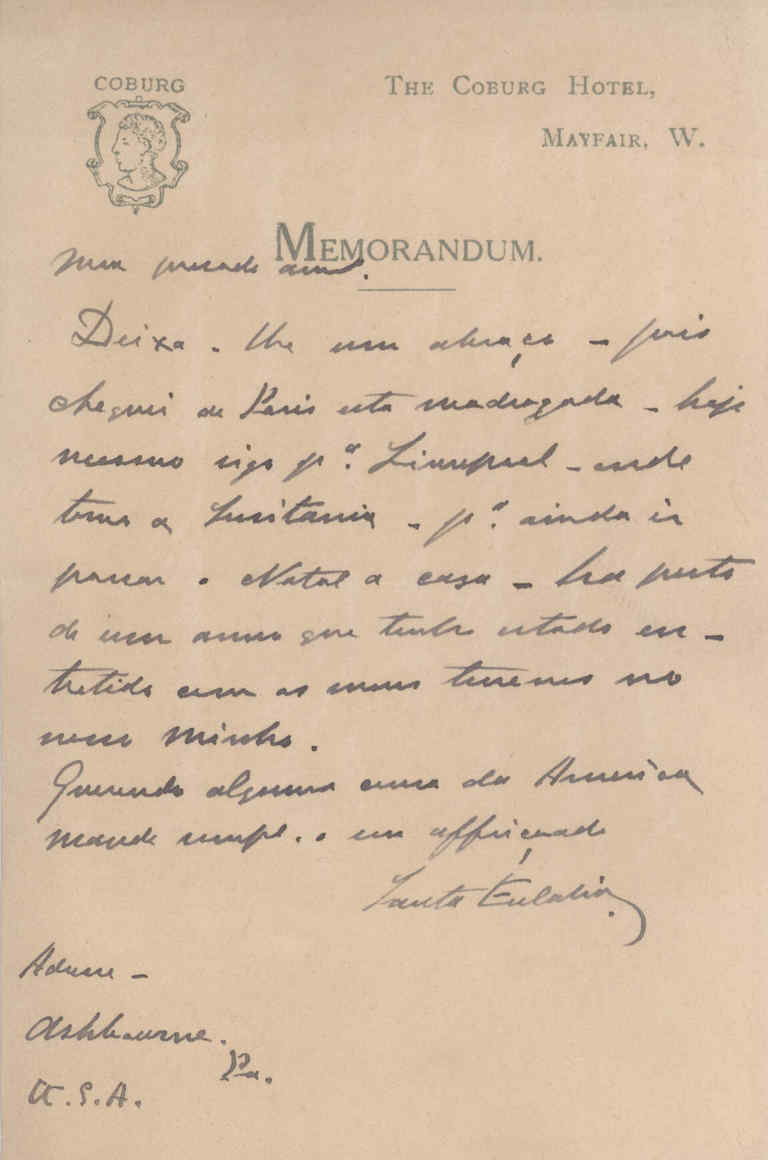 COBURG
THE COBURG HOTEL,
MAYFAIR, W.
MEMORANDUM.
Meu presado am.º
Deixa-lhe um abraço – pois
cheguei de Paris esta madrugada – hoje
mesmo sigo p.ª Liverpool – onde
tomo o Lusitania – p.ª ainda ir
passar o Natal a casa – ha perto
de um anno que tenho estado en-
tretido com os meus terrenos no
nosso Minho.
Querendo alguma cousa da America
mande sempre o seu affeiçoado
Santa Eulalia
Adresse –
Ashbourne.
Pa.
U.S.A.